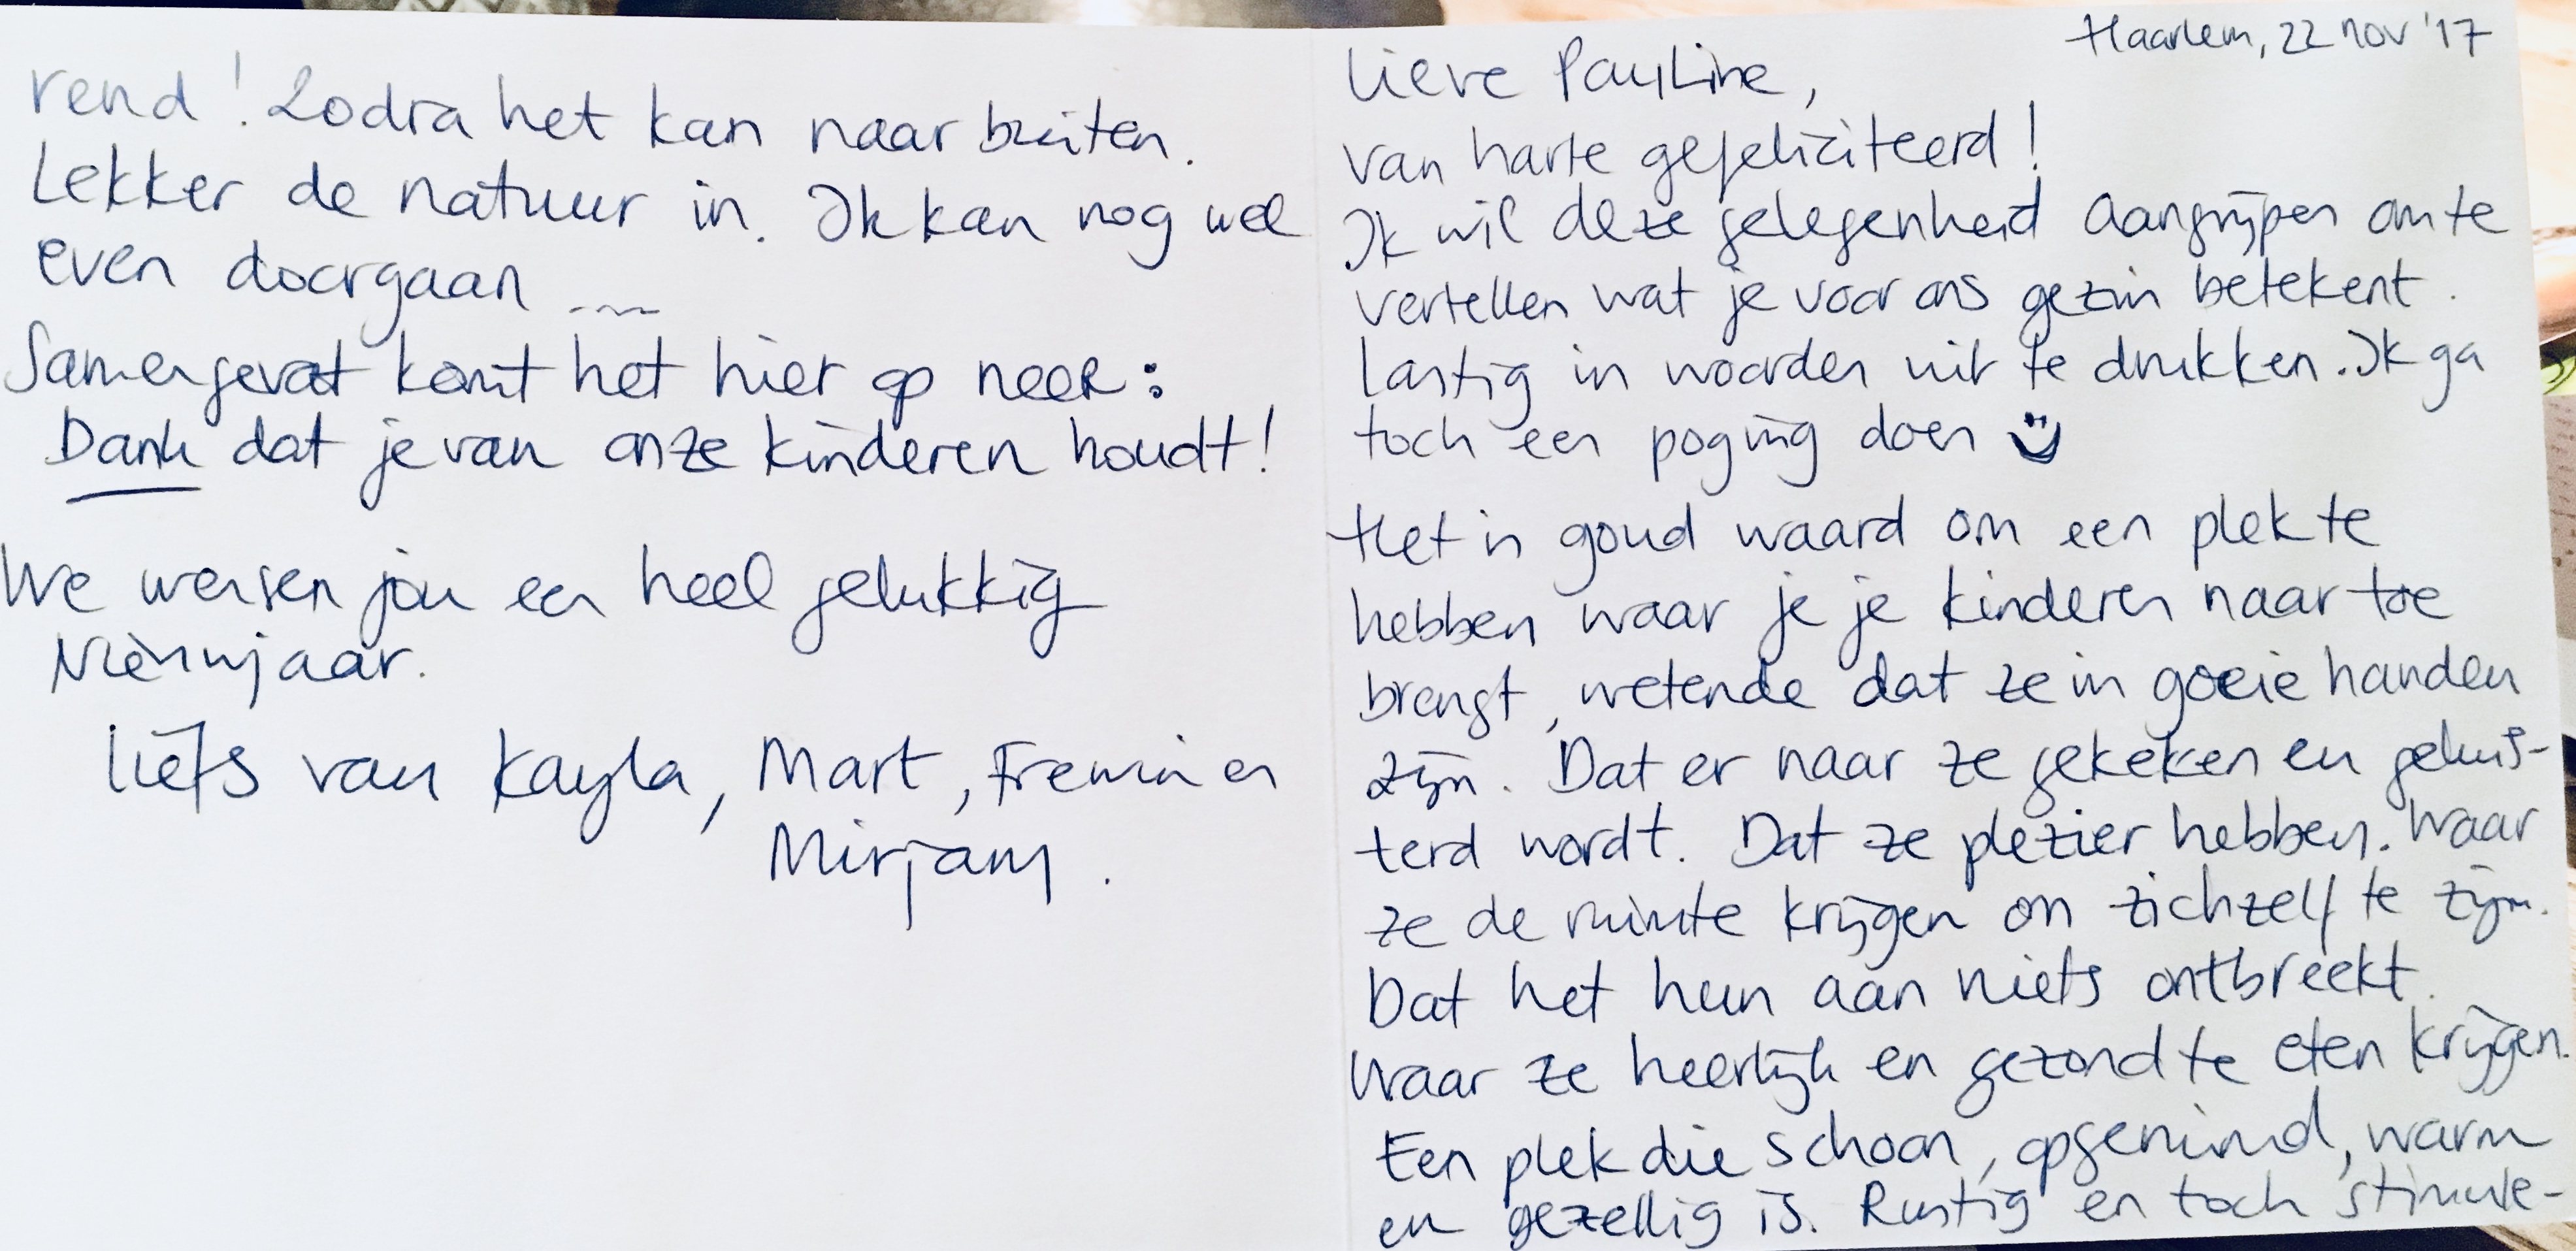 Haarlem, 22 nov '17
Lieve Pauline,
van harte gefeliciteerd!
Ik wil deze gelegenheid aangrijpen om te
vertellen wat je voor ons gezin betekent.
Lastig in woorden uit te drukken. Ik ga
toch een poging doen
Het is goud waard om een plek te
hebben waar je je kinderen naar toe
brengt, wetende dat ze in goeie handen
zijn. Dat er naar ze gekeken en geluis-
terd wordt. Dat ze plezier hebben. Waar
ze de ruimte krijgen om zichzelf te zijn.
Dat het hun aan niets ontbreekt.
Waar ze heerlijk en gezond te eten krijgen.
Een plek die schoon, opgeruimd, warm
en gezellig is. Rustig en toch stimule-
rend! Zodra het kan naar buiten.
Lekker de natuur in. Ik kan nog wel
even doorgaan ....
Samengevat komt het hier op neer:
Dank dat je van onze kinderen houdt!
We wensen jou een heel gelukkig
Nieuwjaar.
Liefs van Kayla, Mart, en
Mirjam.